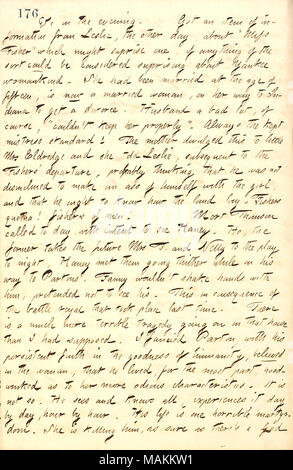 176
Or, in the evening. Got an item of in-
formation from Leslie, the other day about "Miss
Fisher" which might surprise one if anything of the
sort could be considered surprising about Yankee
womankind. She had been married at the age of
fifteen, is now a married woman, on her way to In-
diana to get a divorce. Husband a bad lot, of
course, "couldn't keep her properly." Always the kept
mistress standard! The mother divulged this to little
Mrs Eldredge and she to Leslie, subsequent to the
Fishers departure, probably thinking that he was not
disinclined to make an ass of himself with the girl,
and that he ought to know how the land lay. Fishers
quotha! fishers of men. Mort Thomson
called to day with intent to see Haney. He, the
former takes the picture Mrs T. and Nelly to the play
to night. Haney met them going thither while on his
way to Partons'. Fanny wouldn't shake hands with
him, pretended not to see his. This in consequence of
the battle royal that took place last time. There
is a much more terrible tragedy going on in that house
than I had supposed. I fancied Parton with his
persistent faith in the goodness of humanity, believed
in the woman, that he lived, for the most part good-
winked as to her more odious characteristics. It is
not so. He sees and knows all, experiences it day
by day, hour by hour. His life is one horrible martyr-
dom. She is killing him, as sure as there's a God
alamy
Image ID: MAKKW1
www.alamy.com